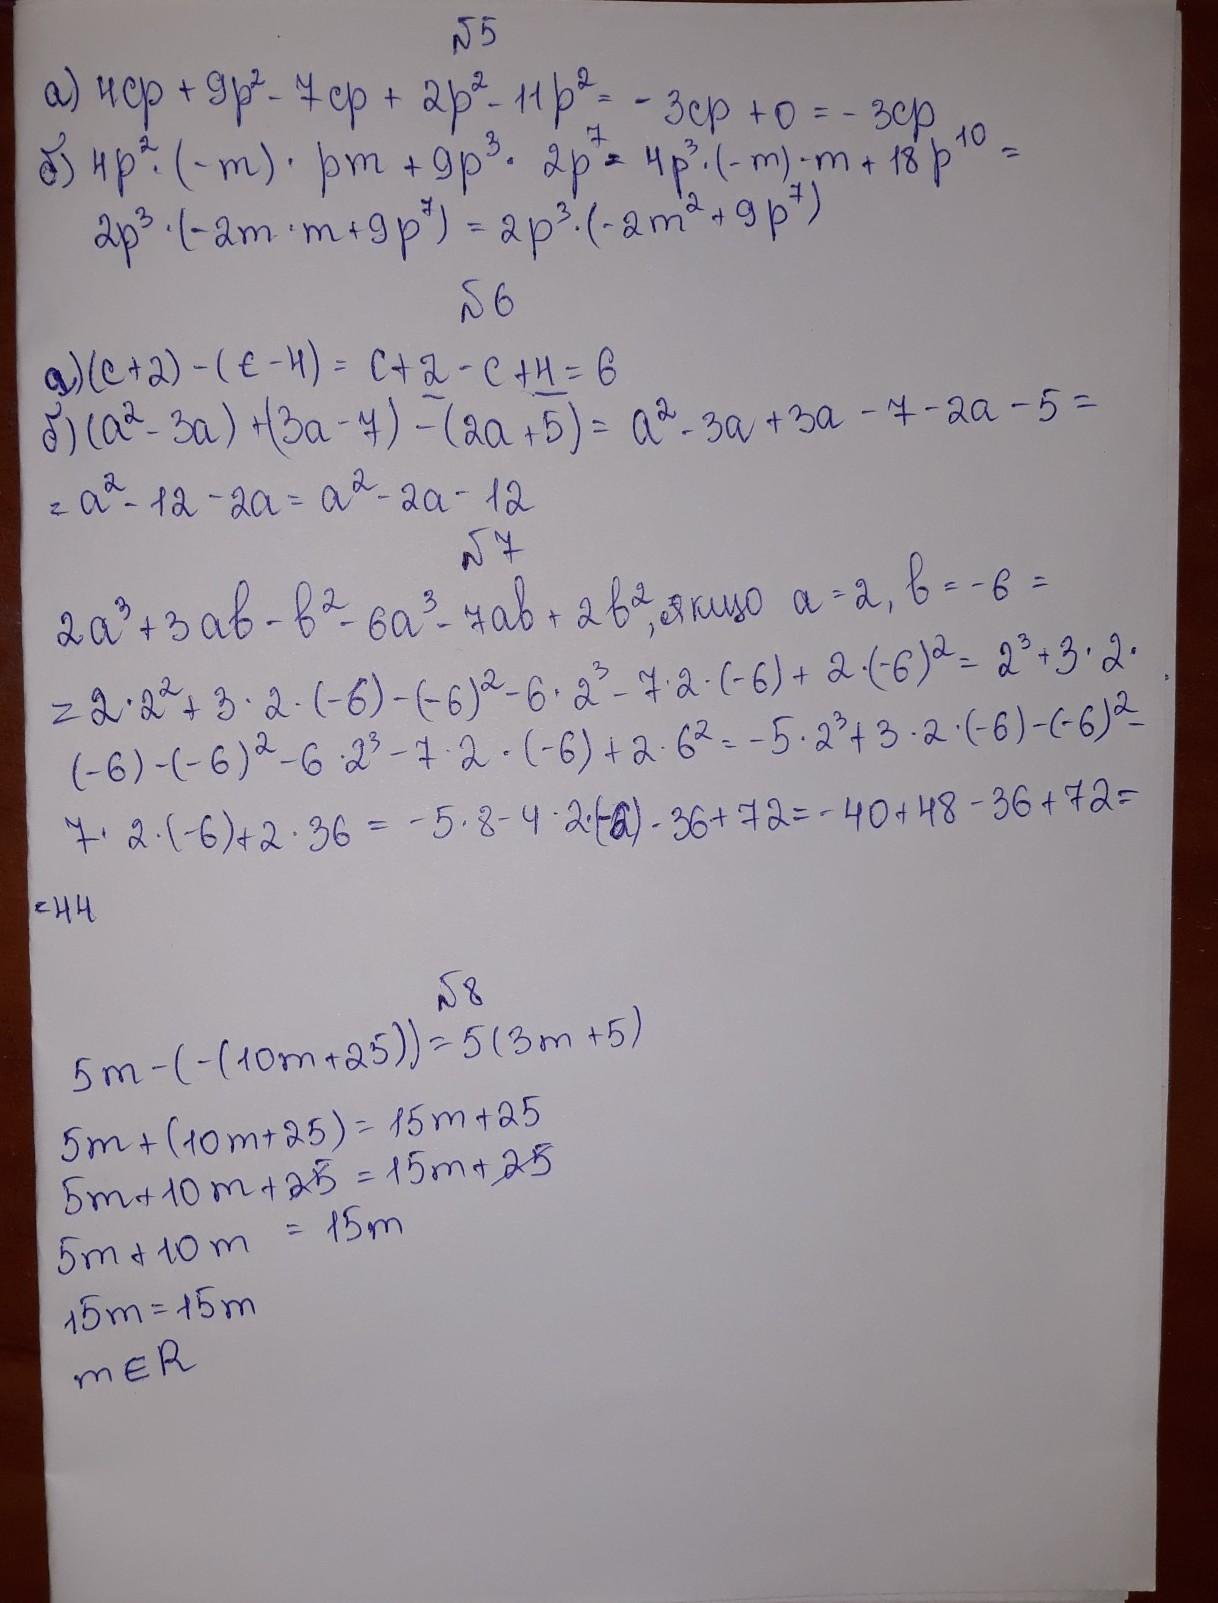 №5
а) 4cp + 9p² - 7cp + 2p² - 11p² = - 3cp + 0 = - 3cp
б) 4p² · (-m) · pm + 9p³ · 2p⁷ = 4p³ · (-m) · m + 18p¹⁰ =
2p³ · (-2m · m + 9p⁷) = 2p³ · (-2m² + 9p⁷)
№6
а) (c+2) - (c-4) = c+2-c+4 = 6
б) (a² - 3a) + (3a - 7) - (2a + 5) = a² - 3a + 3a - 7 - 2a - 5 =
= a² - 12 - 2a = a² - 2a - 12
№7
2a³ + 3ab - b² - 6a³ - 7ab + 2b², якщо a = 2, b = -6 =
= 2 · 2² + 3 · 2 · (-6) - (-6)² - 6 · 2³ - 7 · 2 · (-6) + 2 · (-6)² = 2³ + 3 · 2 ·
(-6) - (-6)² - 6 · 2³ - 7 · 2 · (-6) + 2 · 6² = -5 · 2³ + 3 · 2 · (-6) - (-6)² -
7 · 2 · (-6) + 2 · 36 = -5 · 8 - 4 · 2 · (-6) - 36 + 72 = - 40 + 48 - 36 + 72 =
= 44
№8
5m - (-(10m + 25)) = 5(3m + 5)
5m + (10m + 25) = 15m + 25
5m + 10m + 25 = 15m + 25
5m + 10m = 15m
15m = 15m
m ∈ R